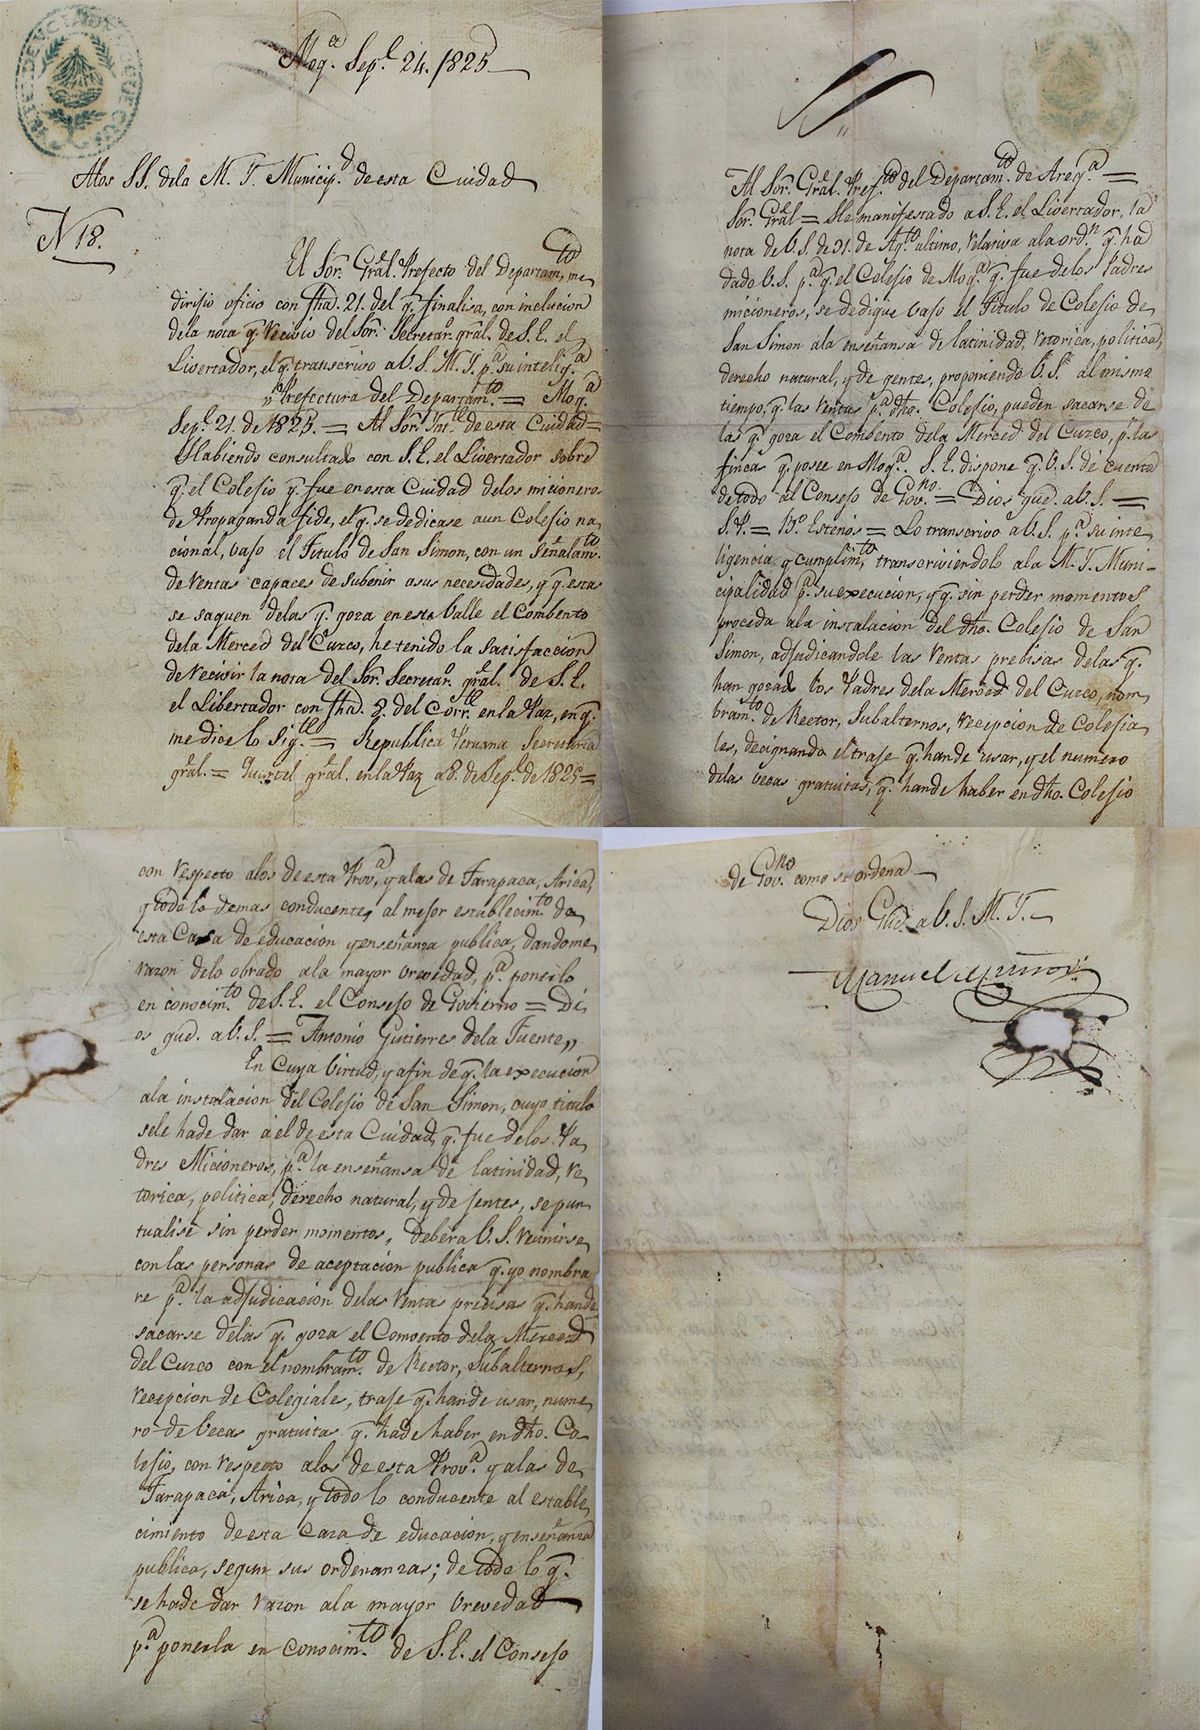 Moq.ª Sep.e 24. 1825
Alos SS. dela M. I. Municip.d de esta Ciudad
N 18.
El Sor. Grâl. Prefecto del Departam.to me
dirijio oficio con fha. 21. del q.e finalisa, con inclucion
dela nota q.e recivio del Sor. Secretar.o grâl. de S. E. el
Livertador, el q.e transcrivo a V. S. M. I. p.a su intelig.a
"Prefectura del Departam.to = Moq.a
Sep.e 21. de 1825. = Al Sor. Int.te de esta Ciudad =
Habiendo consultado con S. E. el Livertador sobre
q.e el Colejio q.e fue en esta Ciudad delos micioneros
de Propaganda fide, el q.e se dedicase a un Colejio na
cional, vajo el Titulo de San Simon, con un Señalam.to
de rentas capaces de subenir asus necesidades, y q.e estas
se saquen delas q.e goza en este Valle el Combento
dela Merced del Cuzco, he tenido la satisfaccion
de recivir la nota del Sor. Secretar.o grâl. de S. E.
el Libertador con fha. 8. del Corr.te en la Paz, en q.e
me dice lo Sig.te = Republica Peruana Secretaria
grâl. = Quartel grâl. en la Paz a 8. de Sep.e de 1825 =
Al Sor. Grâl. Pref.to del Departam.to de Areq.a =
Sor. Grâl = He manifestado a S. E. el Livertador, la
nota de V. S. de 31. de Ag.to ultimo, relativa a la ord.n q.e ha
dado V. S. p.a q.e el Colejio de Moq.a q.e fue delos Padres
micioneros, se dedique vajo el Titulo de Colejio de
San Simon ala enseñansa de latinidad, retorica, politica,
derecho natural, y de gentes, proponiendo V. S. al mismo
tiempo, q.e las rentas p.a dho. Colejio, pueden sacarse de
las q.e goza el Combento dela Merced del Cuzco, p.r las
fincas q.e posee en Moq.a. S. E. dispone q.e V. S. dé cuenta
de todo al Consejo de Gov.no = Dios gue. a V. S. =
S. P. = F.o Estenós = Lo transcrivo a V. S. p.a su inte
ligencia, y cumplim.to transcriviendolo ala M. I. Muni-
cipalidad p.a su execucion, y q.e sin perder momentos
proceda ala instalacion del dho. Colejio de San
Simon, adjudicandole las rentas precisas delas q.e
han gozado los Padres dela Merced del Cuzco, nom
bram.to de Rector, Subalternos, recepcion de Colejia
les, decignando el traje q.e han de usar, y el numero
delas becas gratuitas, q.e han de haber en dho. Colejio
con respecto alos de esta Prov.a y alas de Tarapaca, Arica,
y todo lo demas conducente al mejor establecim.to de
esta Casa de educacion y enseñanza publica, dandome
razon delo obrado ala mayor brevedad, p.a ponerlo
en conocim.to de S. E. el Consejo de Govierno = Di
os gue. a V. S. = Antonio Gutierres dela Fuente"
En cuya virtud, y a fin de q.e la execucion
ala instalacion del Colejio de San Simon, cuyo titulo
se le ha de dar á el de esta Ciudad, q.e fue delos Pa
dres Micioneros, p.a la enseñansa de latinidad, re
torica, politica, derecho natural, y de jentes, se pun
tualise sin perder momentos, deberá V. S. reunirse
con las personas de aceptacion publica q.e yo nombra
re p.a la adjudicacion delas rentas precisas q.e han de
sacarse delas q.e goza el Convento dela Merced
del Cuzco con el nombram.to de Rector, Subalternos,
recepcion de Colegiales, traje q.e han de usar, nume
ro de becas gratuitas q.e ha de haber en dho. Co-
lejio, con respecto alos de esta Prov.a y alas de
Tarapacá, Arica, y todo lo conducente al estable
cimiento de esta Caza de educacion, y enseñanza
publica, segun sus ordenanzas; de todo lo q.e
se ha de dar razon ala mayor brevedad
p.a ponerla en conocim.to de S. E. el Consejo
de Gov.no como se ordena
Dios Gue. a V. S. M. I.
Manuel